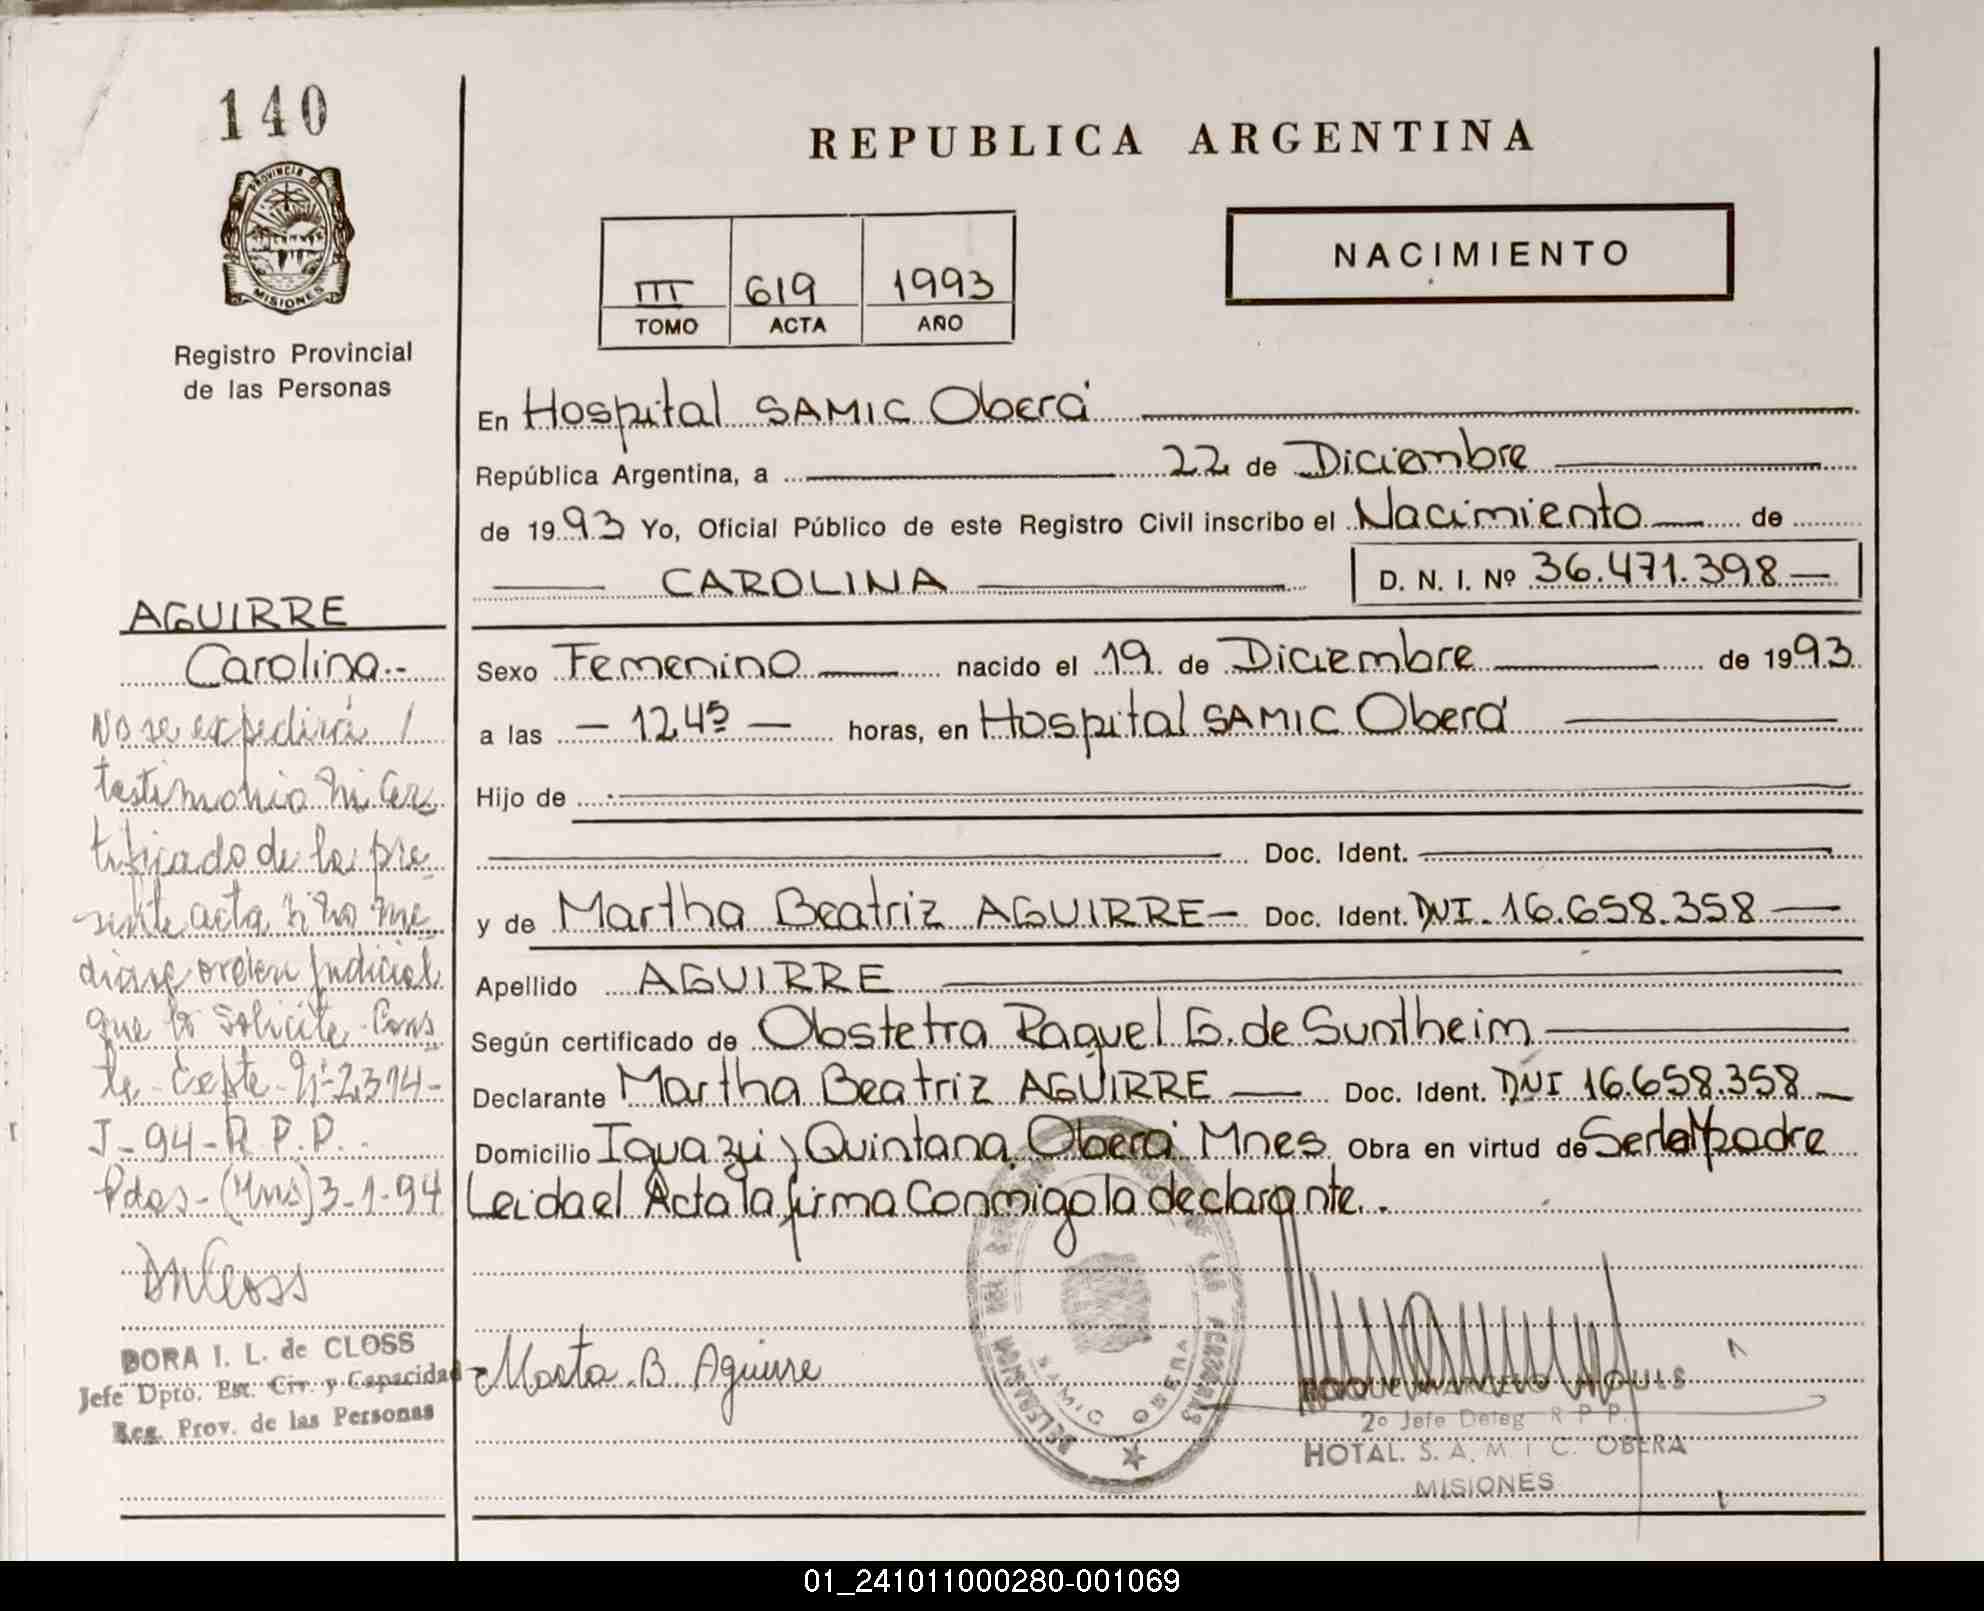 140
PROVINCIA D
MISIONES
Registro Provincial
de las Personas
AGUIRRE
Carolina.-
No se expedirá /
testimonio ni Cer
tificado de la pre
sente acta si no me
diare orden Judicial
que lo solicite. Cons
te. Expte. Nº 2314-
J-94-R.P.P..
Pdas-(Mns) 3-1-94
DORA I. L. de CLOSS
Jefe Dpto. Est. Civ. y Capacidad
Reg. Prov. de las Personas
REPUBLICA ARGENTINA
NACIMIENTO
III 619 1993
TOMO ACTA AÑO
En Hospital SAMIC Oberá
República Argentina, a 22 de Diciembre
de 1993 Yo, Oficial Público de este Registro Civil inscribo el Nacimiento de
CAROLINA D. N. I. Nº 36.471.398
Sexo Femenino nacido el 19 de Diciembre de 1993
a las - 12,45 - horas, en Hospital SAMIC Oberá
Hijo de
Doc. Ident.
y de Martha Beatriz AGUIRRE- Doc. Ident. DNI. 16.658.358
Apellido AGUIRRE
Según certificado de Obstetra Raquel G. de Suntheim
Declarante Martha Beatriz AGUIRRE Doc. Ident. DNI 16.658.358
Domicilio Iguazú y Quintana. Oberá Mnes Obra en virtud de Ser la Madre
Leida el Acta la firma Conmigo la declarante..
Marta. B. Aguirre
DE LAS PERSONAS
SAMIC OBERA
2º Jefe Deleg R P P.
HOTAL. S. A. M. I C. OBERA
MISIONES
01_241011000280-001069